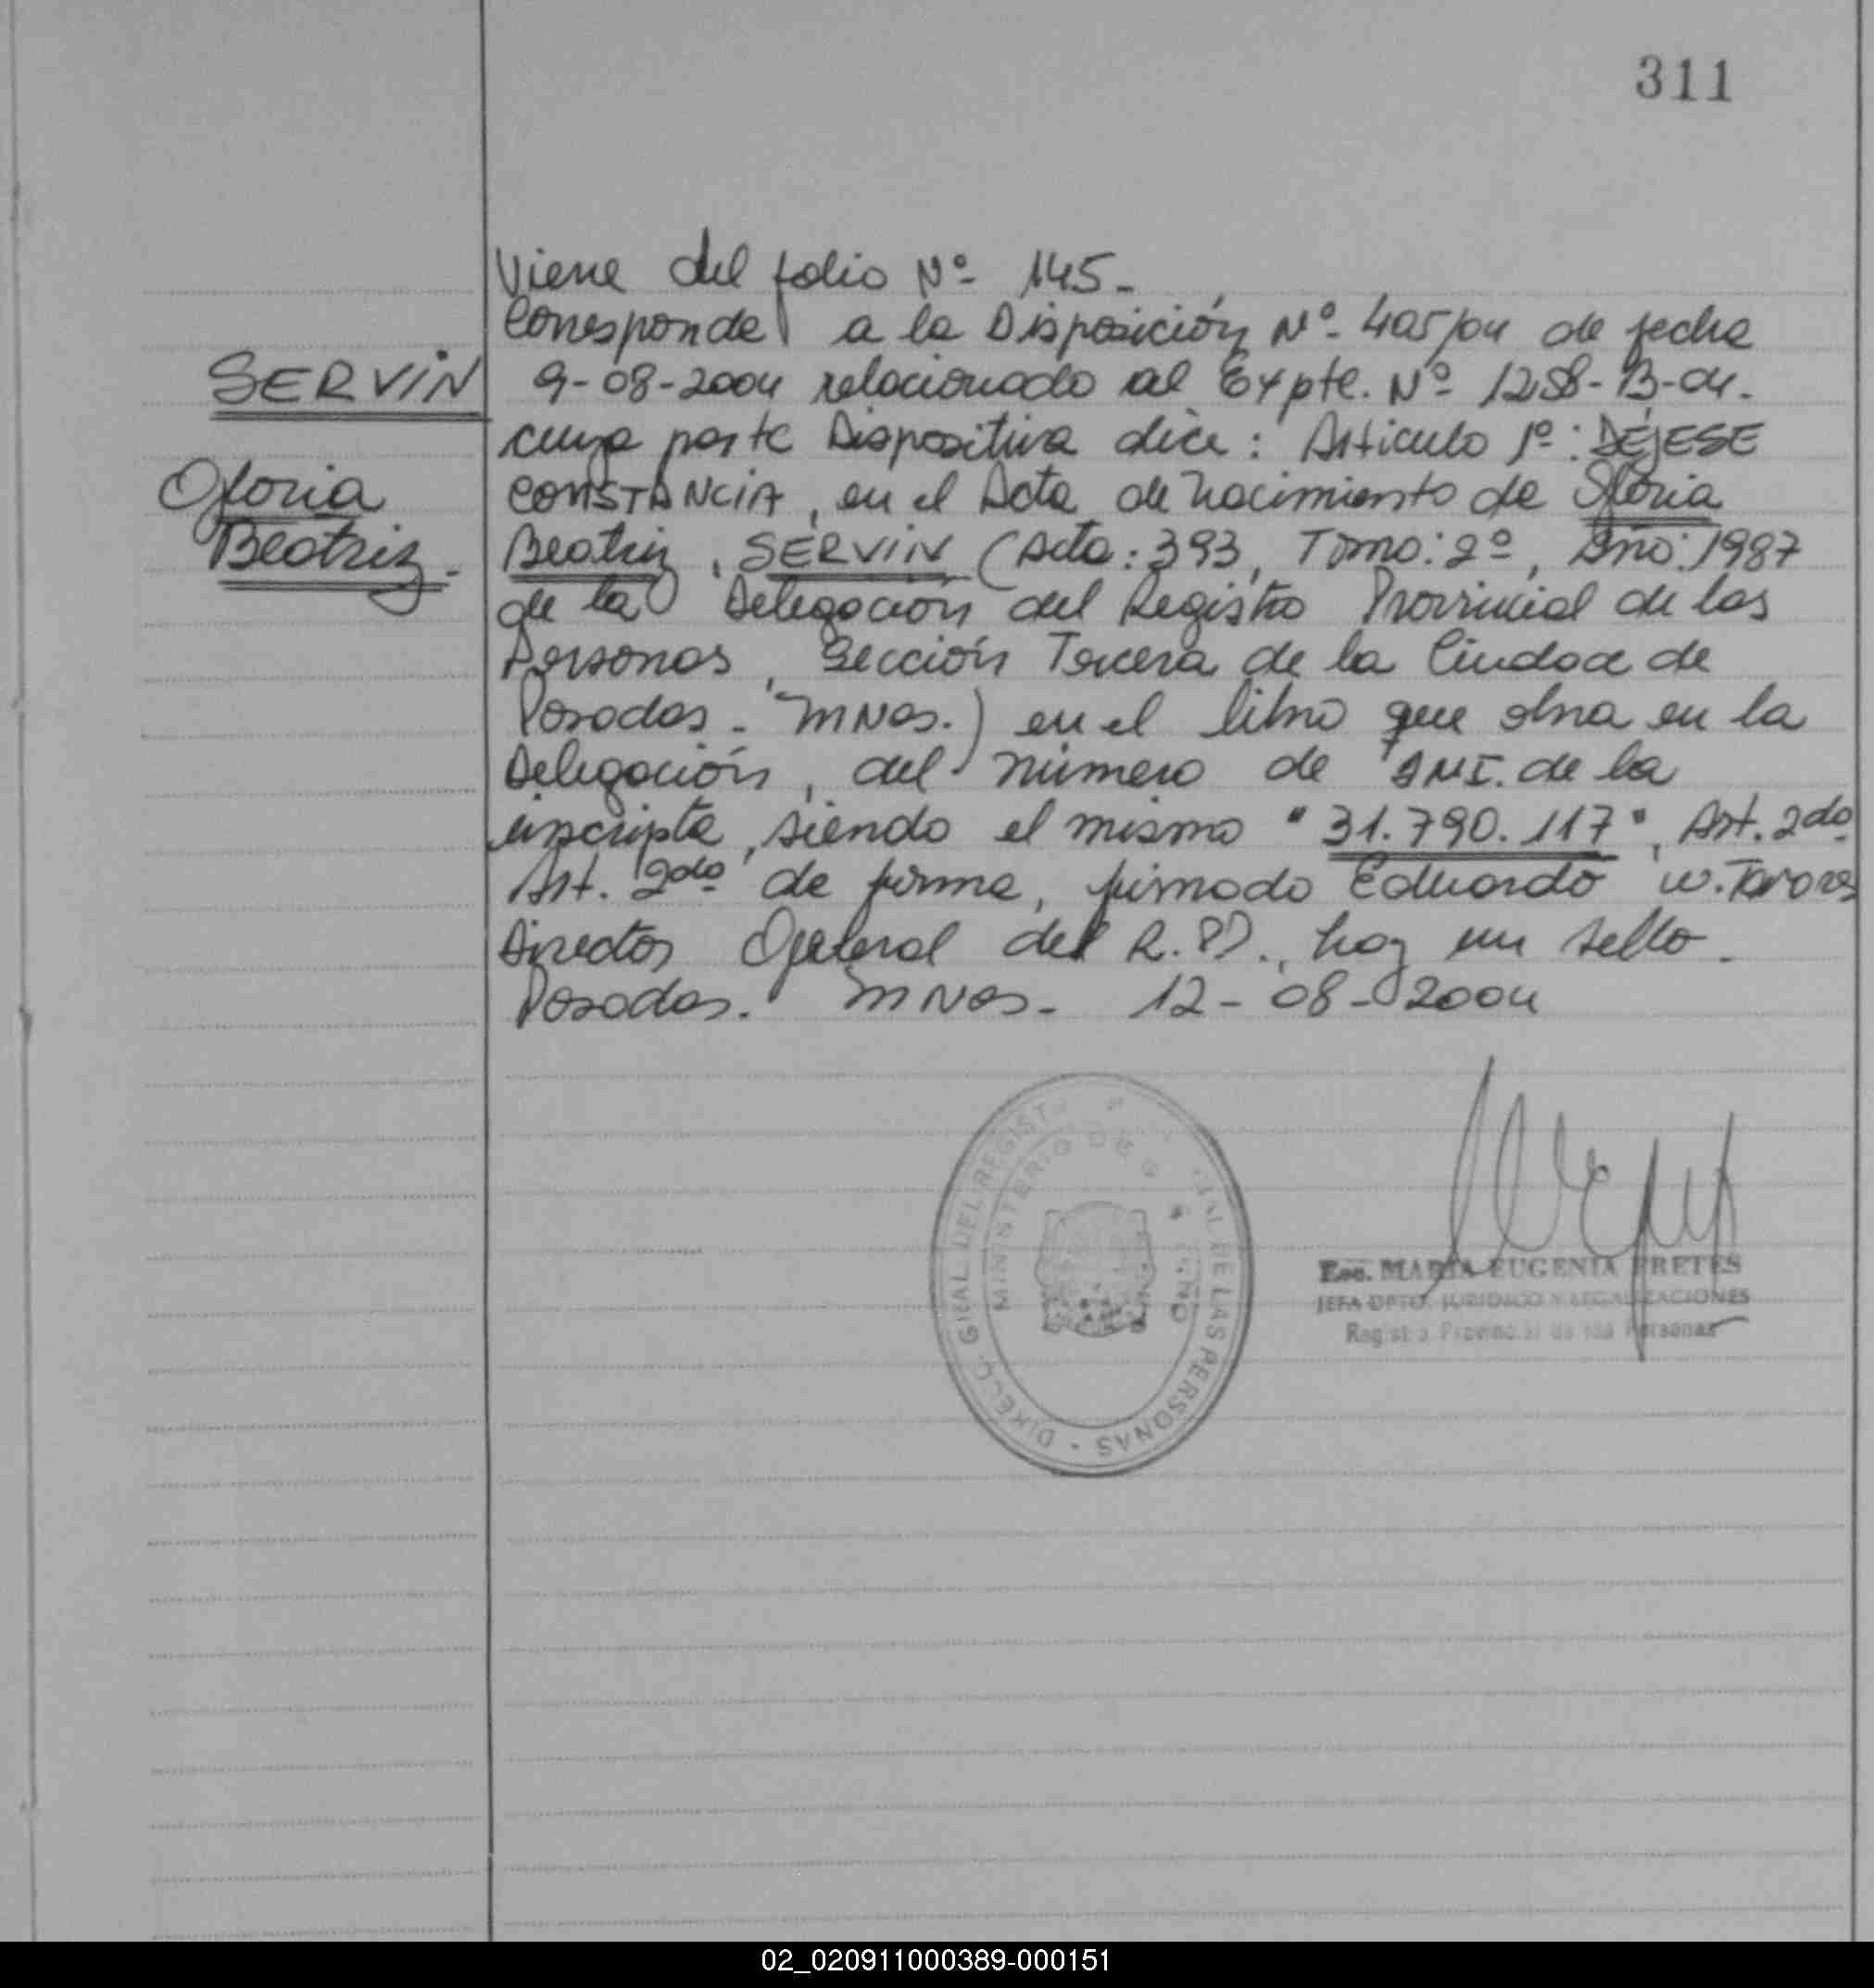 311
Viene del folio Nº 145-
Corresponde a la Disposición Nº 405/04 de fecha
SERVIN
9-08-2004 relacionado al Expte. Nº 1258-B-04.
cuya parte Dispositiva dice: Artículo 1º: DÉJESE
Gloria
CONSTANCIA, en el Acta de nacimiento de Gloria
Beatriz.
Beatriz, SERVIN (Acta: 393, Tomo: 2º, Año: 1987
de la Delegación del Registro Provincial de las
Personas, Sección Tercera de la Ciudad de
Posadas - Mnes.) en el libro que obra en la
Delegación, del número de DNI. de la
inscripta, siendo el mismo "31.790.117", Art. 2do
Art. 2do de forma, firmado Eduardo W. Tavares
Director General del R.P.P., hay un sello -
Posadas. Mnes - 12-08-2004
DIRECC. GRAL. DEL REGIST DE LAS PERSONAS
MINISTERIO DE
Esc. MARIA EUGENIA FRETES
JEFA DPTO. JURIDICO Y LEGALIZACIONES
Registro Provincial de las Personas
02_020911000389-000151